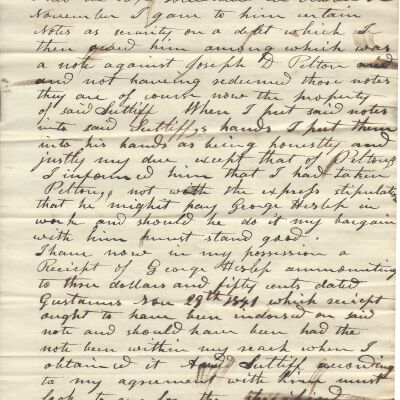 November I gave to him certain
Notes as security on a debt which I
then owed him among which was
a note against Joseph D Pelton and
and not haveing redeemed those notes
they are of course now the property
of said Sutliff When I put said notes
into said Sutliff,s hands I put them
into his hands as being honestly and
justly my due except that of Peltons
I informed him that I had taken
Peltons not with the express stipulati
that he might pay George Heslep in
work and should he do it my bargain
with him must stand good.
I have now in my possession a
Reciept of George Heslep ammounting
to three dollars and fifty cents dated
Gustavus Nov 29th 1841 which reciept
ought to have been indorsed on said
note and should have been had the
note been within my reach when I
obtained it And Sutliff according
to my agreement with him must
look to me for the